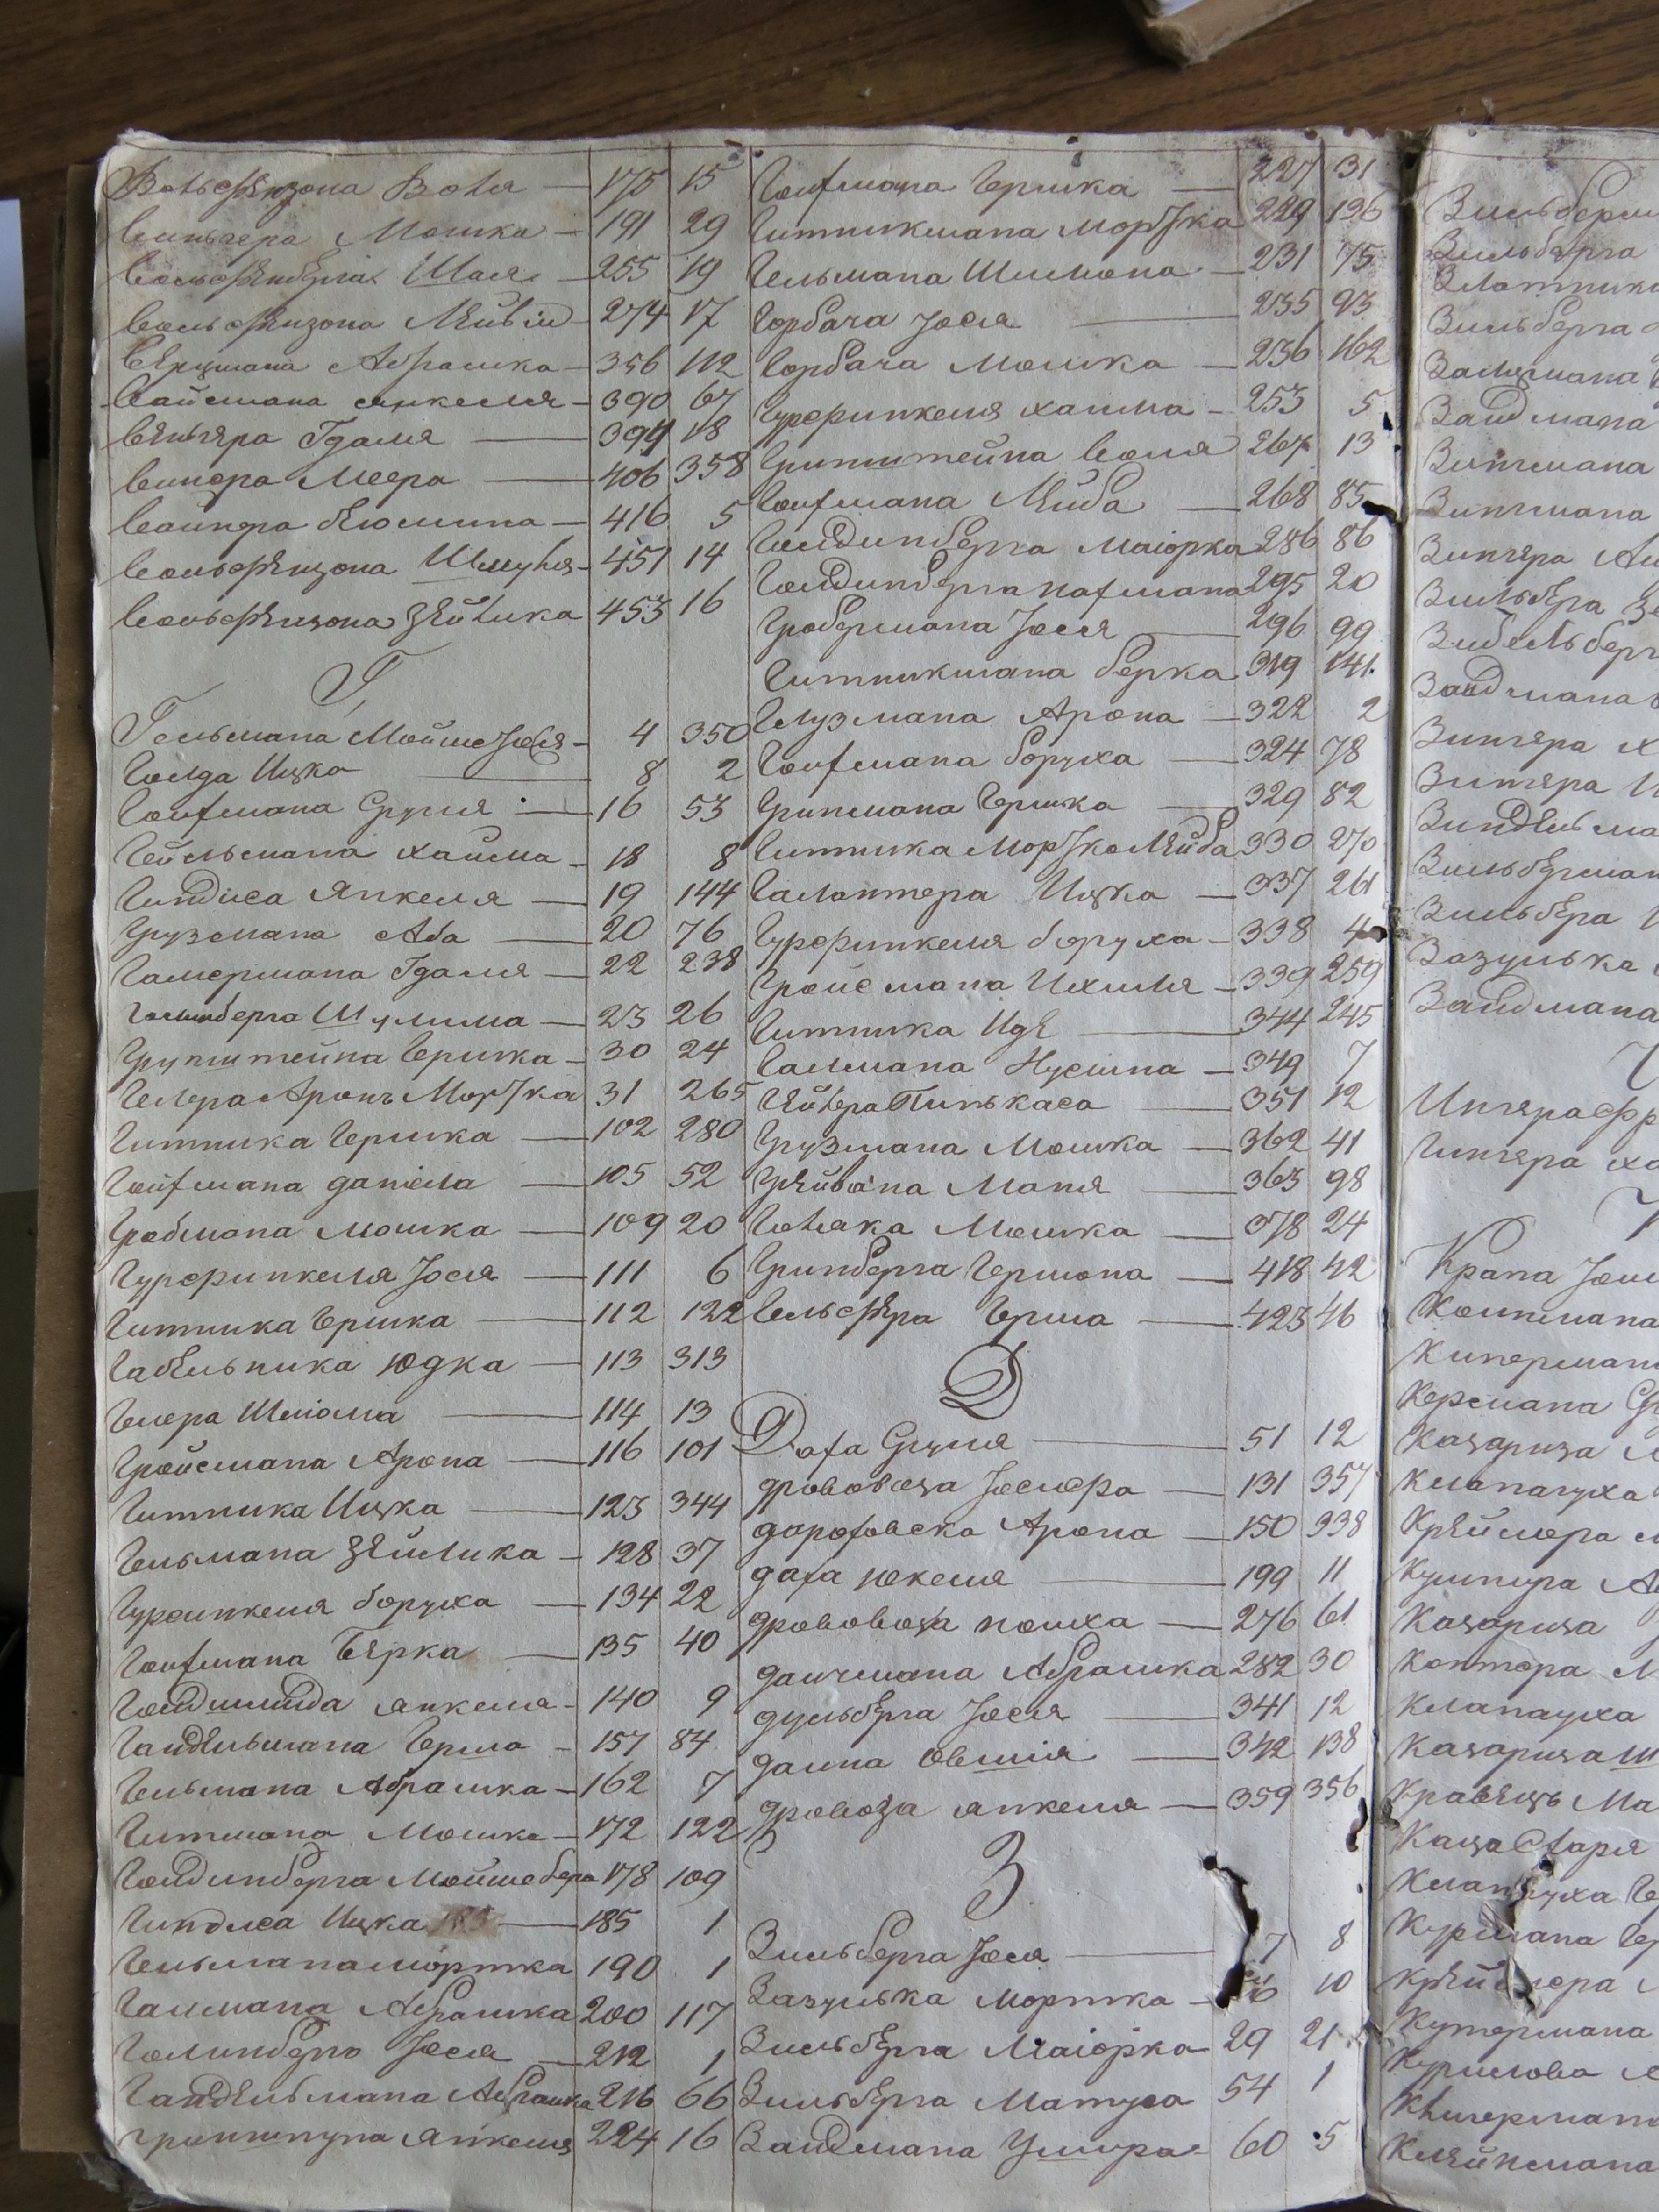 Вольфензона Воля — 175 15
Вингера Мошка — 191 29
Вольфенберга Шая — 255 19
Вольфензона Лейви — 274 17
Верцмана Абрашка — 356 112
Вайсмана Янкеля — 390 67
Венгера Гдаля — 394 18
Винера Меера — 406 358
Вайнера Беюмина — 416 5
Вольфензона Шмуля — 451 14
Вольфензона Зейлика 453 16
Г
Гельмана Мойше Иося — 4 350
Голда Ицка — 8 2
Гойхмана Сруля — 16 53
Гейсьмана Хаима — 18 8
Гиндиса Янкеля — 19 144
Грузмана Аба — 20 76
Гамермана Гдаля — 22 238
Гольнберга Шулима — 23 26
Грунштейна Гершка — 30 24
Гелера Аронъ Мортка 31 265
Гитника Гершка — 102 280
Гойхмана Даниела — 105 52
Гробмана Мошка — 109 20
Гурфинкеля Иося — 111 6
Гитника Гершка — 112 122
Габельника Юдка — 113 313
Гелера Шлиома — 114 13
Гройсмана Арона — 116 101
Гитника Ицка — 123 344
Гельмана Зейлика — 128 37
Гурфинкеля Боруха — 134 22
Гойхмана Берка — 135 40
Гольдшмида Янкеля — 140 9
Гандельмана Герша — 157 84
Гельмана Абрашка — 162 7
Гитмана Мошка — 172 122
Гольдинберга Мойше Бера 178 109
Гиндиса Ицка — 185 1
Гельмана Мортка 190 1
Галмана Абрашка 200 117
Голинберга Иося — 212 1
Гандельмана Абрашка 216 66
Янкеля 224 16
Гойхмана Гершка — 227 31
Гитникмана Мортка 229 136
Гельмана Шимона — 231 75
Горбача Иося — 235 93
Горбача Мошка — 236 162
Гурфинкеля Хаима — 253 5
Гринштейна Воля 267 13
Гойхмана Лейба — 268 85
Гольдинберга Маиорка 286 86
Гольдинберга Нахмана 295 20
Гробермана Иося — 296 99
Гитникмана Берка 319 141
Глузмана Арона — 322 2
Гойхмана Боруха — 324 78
Гринмана Гершка — 329 82
Гитника Мортко Лейба 330 270
Галантера Ицка — 337 261
Гурфинкеля Боруха — 338 4
Гройсмана Ихиля — 339 259
Гитника Иде — 344 245
Галмана Нусина — 349 7
Гейлера Пинькаса — 351 12
Грузмана Мошка — 362 41
Грейвана Маня — 363 98
Голяка Мошка — 378 24
Гринберга Гершона — 418 42
Гельфера Герша — 423 46
Д
Даха Сруля — 51 12
Дрововоза Иосифа — 131 357
Дороховска Арона — 150 338
Даха Юкеля — 199 11
Дрововоза Ноиха — 276 61
Дайчмана Абрашка 282 30
Дульберга Иося — 341 12
Даина Овшия — 342 138
Дровоза Янкеля — 359 356
З
Зильберга Иося — 7 8
Зазулька Мортка — 10
Зильберга Маиорка 29 21
Зильберга Матуса 54 1
Зайдмана Ушира 60 5
Зильберга
Златника
Зильберга
Зальцмана
Зайдмана
Зингмана
Зингмана
Зингера
Зильбера
Зибельберг
Зайдмана
Зингера
Зингера
Зандельма
Зильберман
Зильбера
Зазулька
Зайдмана
Ингера
Ингера
К
Крапа
Койнмана
Кипермана
Керсмана
Казариза
Клапауха
Креймера
Кушнира
Казариза
Контора
Клапауха
Казариза
Кравець
Каца
Клапауха
Курмана
Креймера
Кутермана
Курилова
Клейнмана